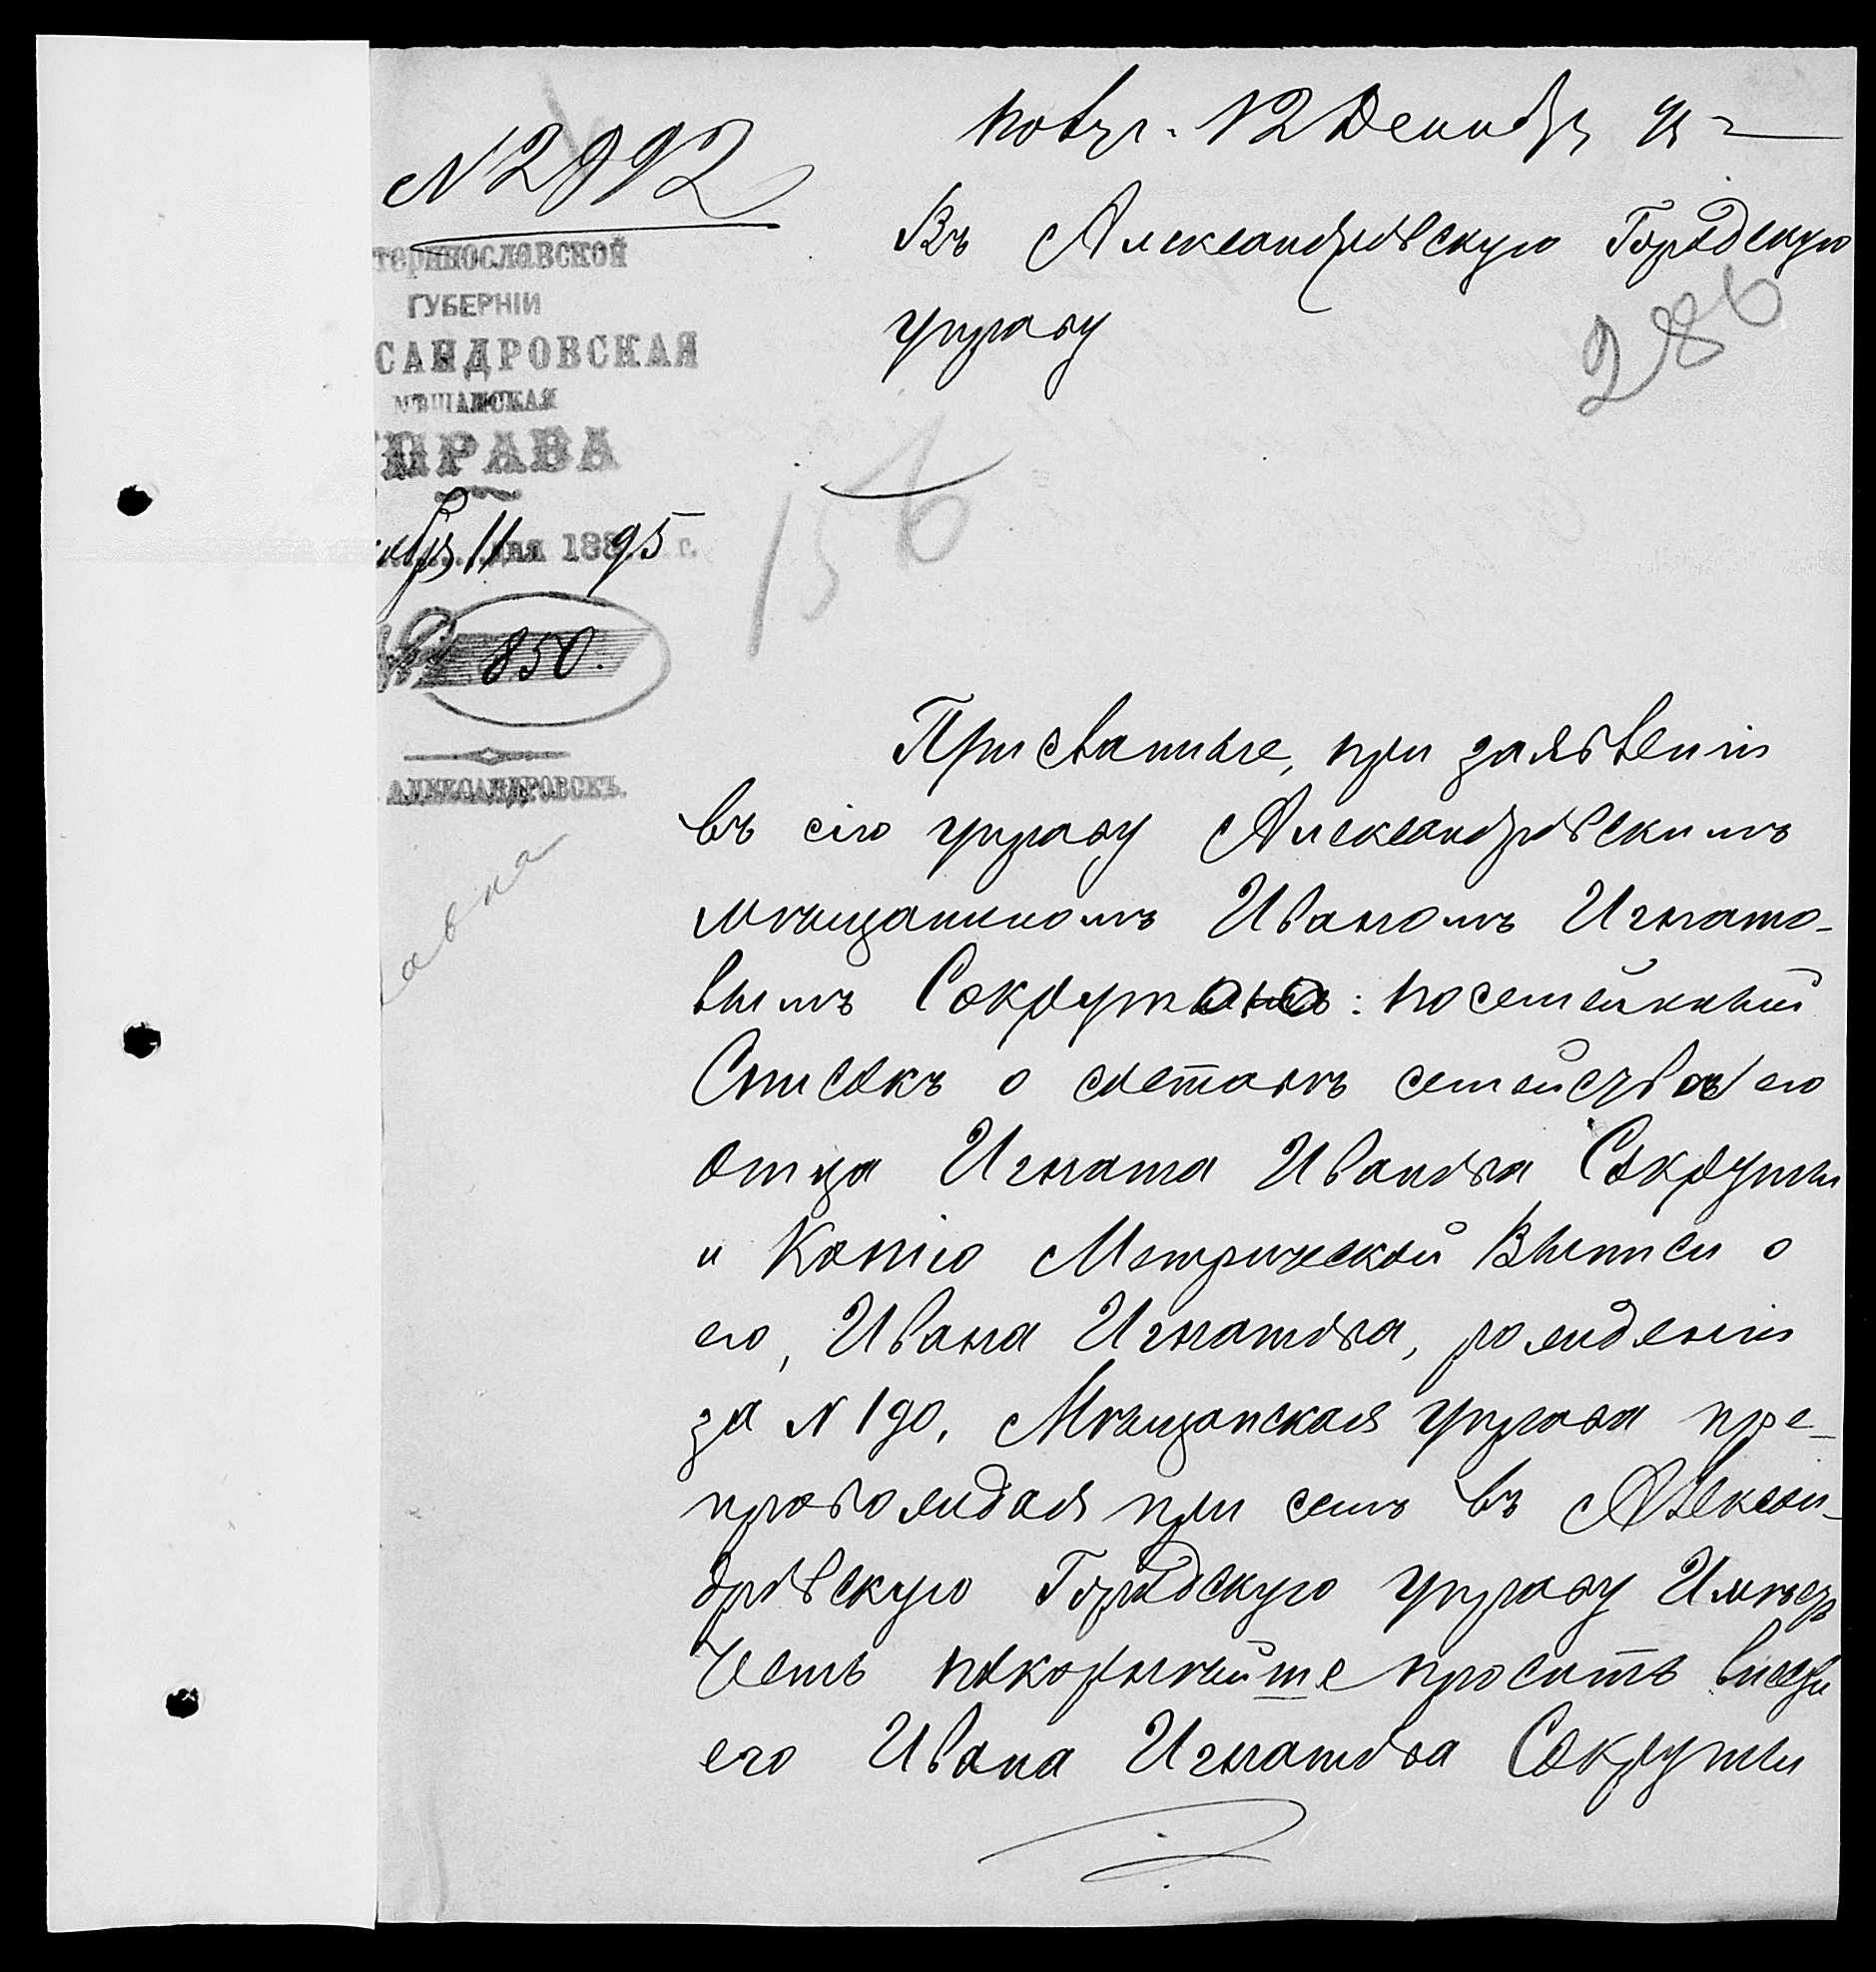 Получ. 12 Декабр 95 г
№ 2992
Въ Александровскую Городскую
управу
286
теринославской
ГУБЕРНІИ
САНДРОВСКАЯ
МѢЩАНСКАЯ
УПРАВА
кабр 11 дня 1895 г.
№ 850.
АЛЕКСАНДРОВСКЪ.
156
Присланные, при заявленіи
въ сію управу Александровскимъ
мѣщаниномъ Иваномъ Игнато-
вымъ Сокрут : посемейный
Списокъ о составѣ семейства его
отца Игната Иванова Сокруты
и Копію Метрической Выписи о
его, Ивана Игнатова, рожденіи
за № 190, Мѣщанская управа пре-
провождая при семъ въ Алексан-
дровскую Городскую управу Имѣетъ
Честь покорнѣйше просить внести
его Ивана Игнатова Сокруты